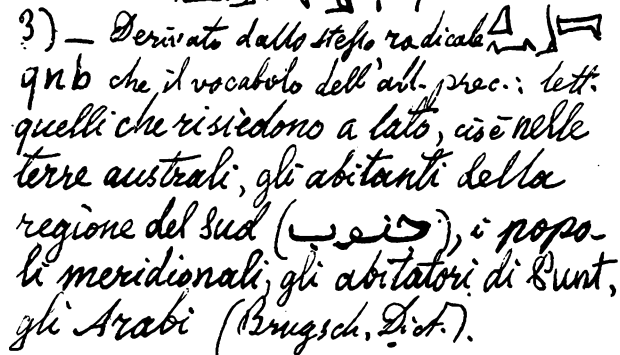 3) — Derivato dallo stesso radicale
qnb che il vocabolo dell'all. prec.: lett.
quelli che risiedono a lato, cioè nelle
terre australi, gli abitanti della
regione del Sud (جنوب), i popo-
li meridionali, gli abitatori di Punt,
gli Arabi (Brugsch, Dict.).